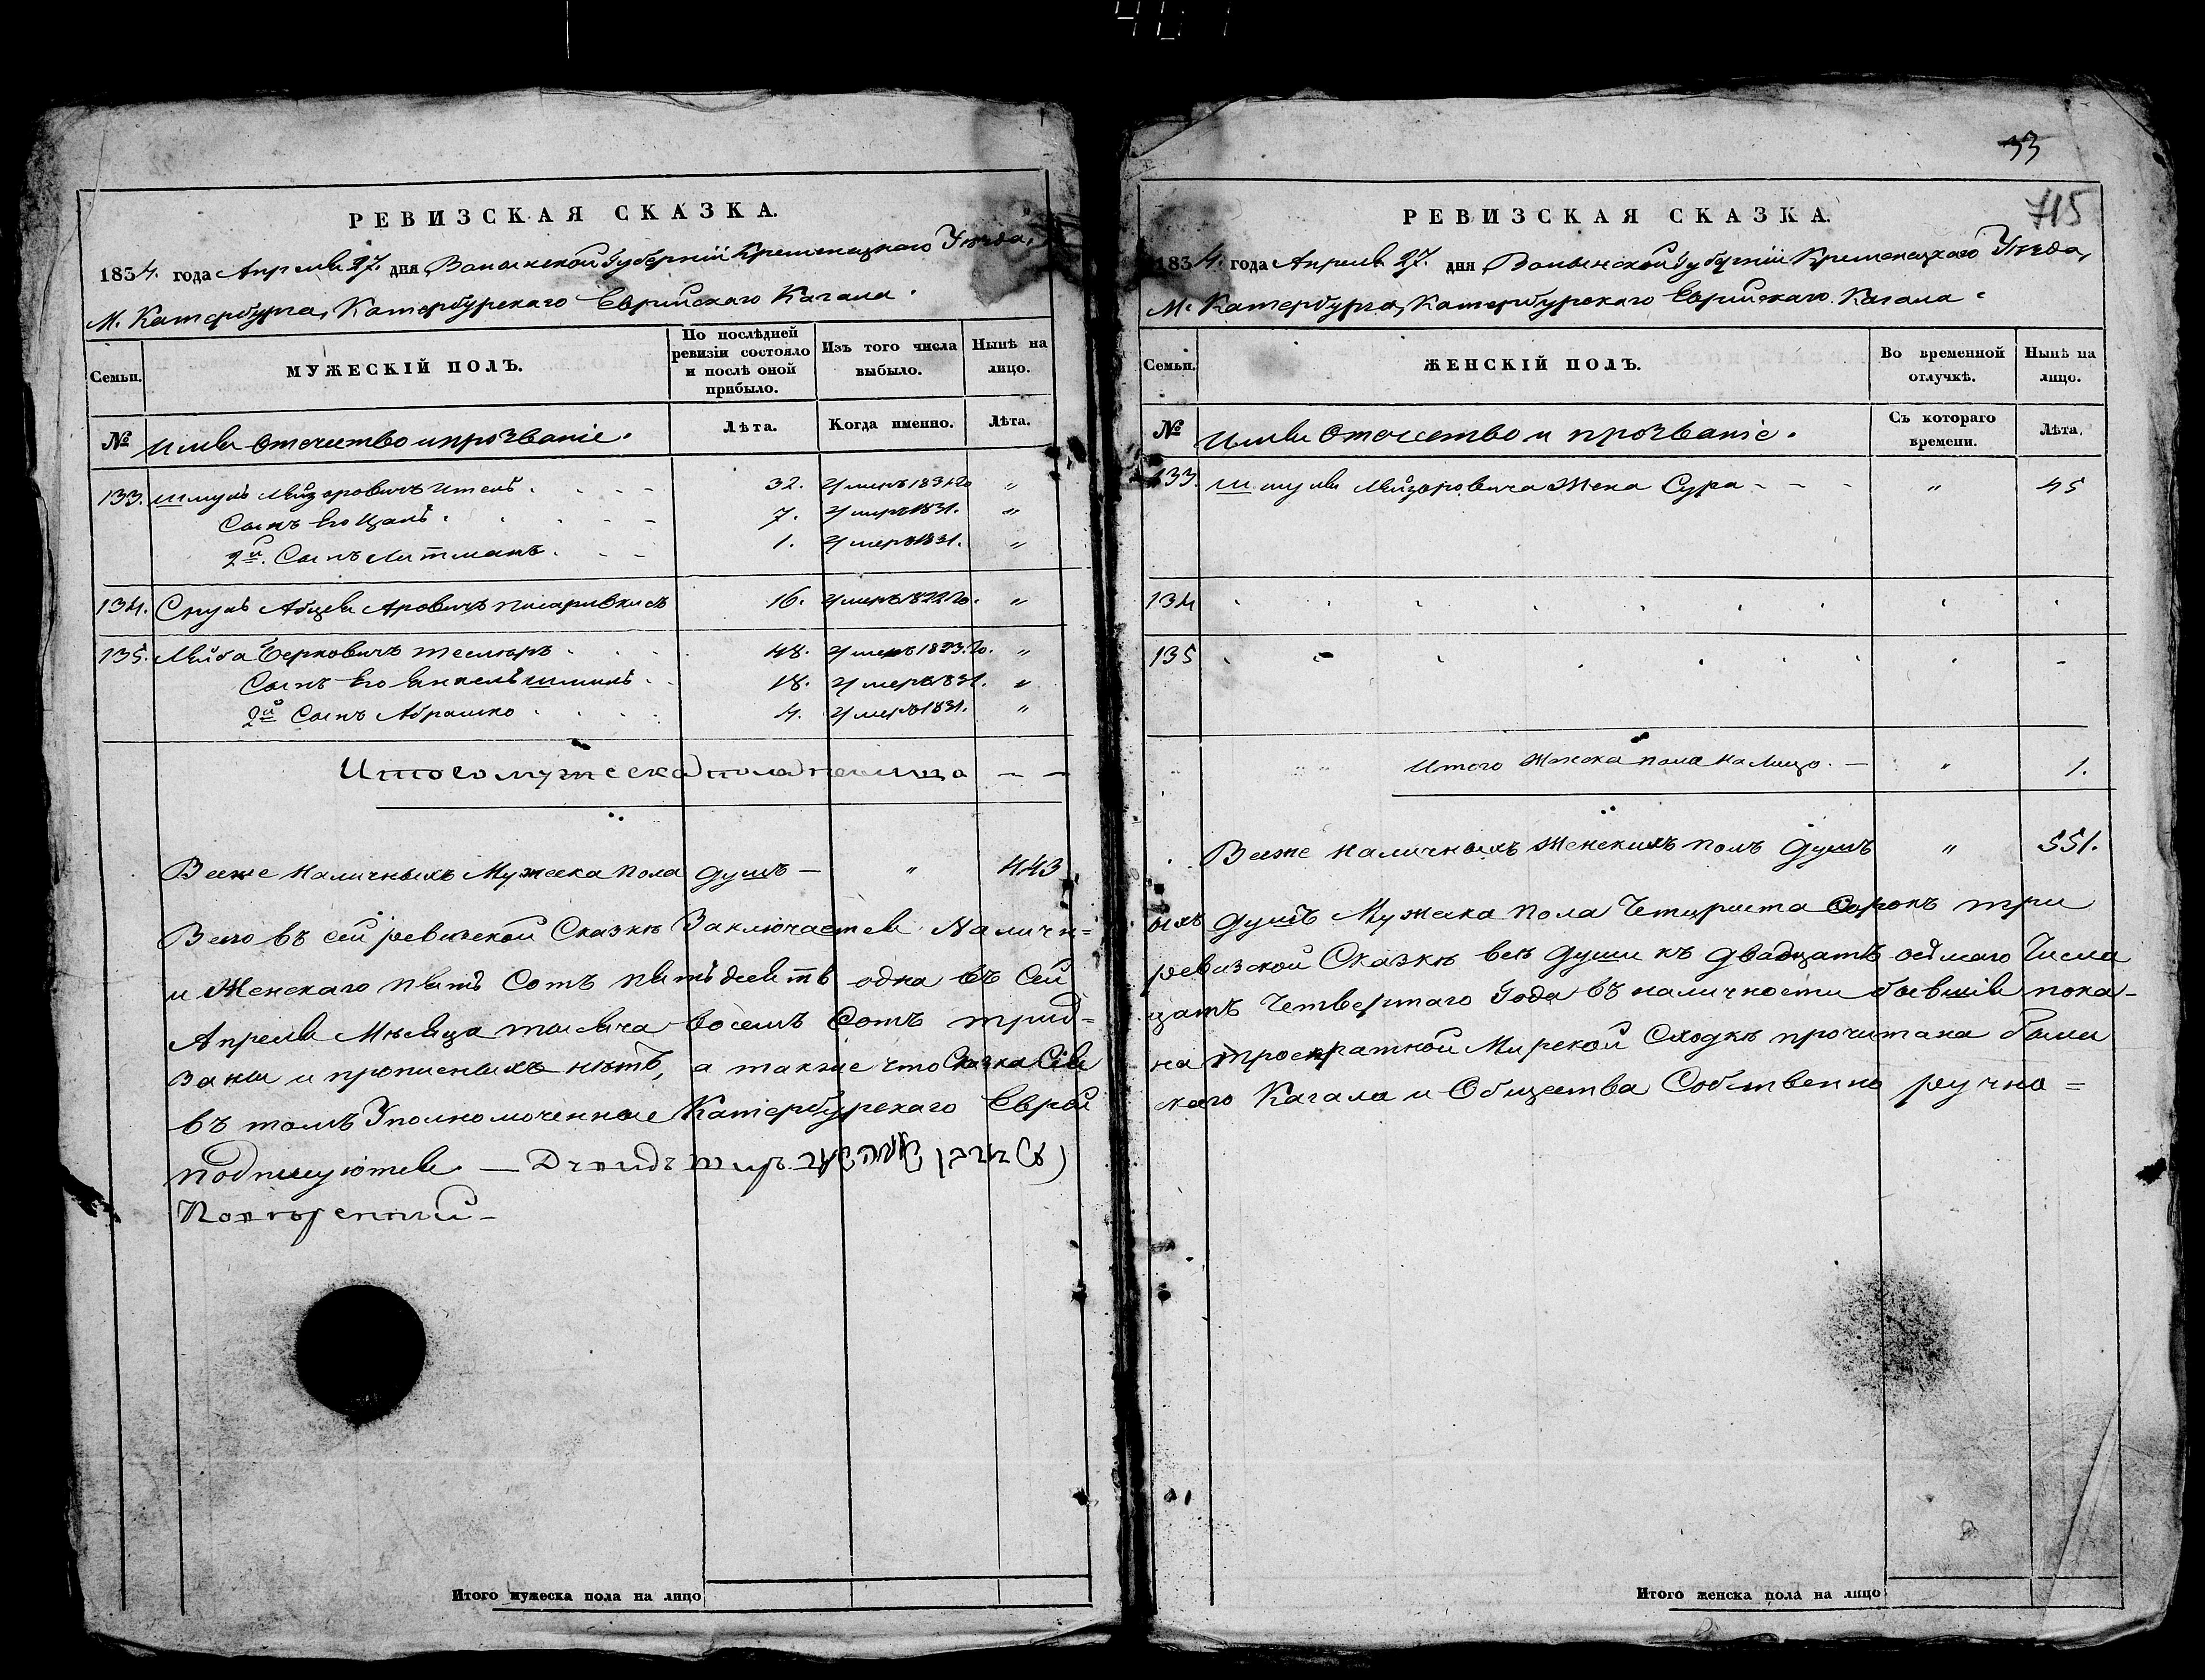 РЕВИЗСКАЯ СКАЗКА.
1834. года Апреля 27. дня Волынской Губерніи Кременецкаго Уезда,
М. Катербурга, Катербурскаго Еврейскаго Кагала.
Семьи.
МУЖЕСКІЙ ПОЛЪ.
По послѣдней ревизіи состояло и послѣ оной прибыло.
Изъ того числа выбыло.
Нынѣ на лицо.
№
Имя Отечество и прозваніе.
Лѣта.
Когда именно.
Лѣта.
133. Шмуль Лейзоровичъ 32. умеръ 1831го "
Сынъ Его 7. умеръ 1831. "
2й. Сынъ Литманъ. 1. умеръ 1831. "
134. Сруль 16. умеръ 1822го. "
135. Лейба Берковичъ 48. умеръ 1823.го. "
Сынъ Его Янкель 18. умеръ 1831. "
2й Сынъ Абрамко 4. умеръ 1831. "
Итого мужеска пола на лицо — —
Всехже Наличныхъ Мужеска пола душъ — " 443
Всего въ сей ревизской Сказкѣ Заключается Наличн=
и Женскаго пять Сотъ пятьдесятъ одна въ Сей
Апреля Мѣсяца тысяча восемь Сотъ трид=
заны и прописныхъ нѣтъ, а также что Сказка Сія
въ томъ Уполномоченные Катербурскаго Еврей
подписуются —
Итого мужеска пола на лицо
33
715
РЕВИЗСКАЯ СКАЗКА.
1834. года Апреля 27. дня Волынской Губерніи Кременецкаго Уезда,
М. Катербурга, Катербурскаго Еврейскаго Кагала.
Семьи.
ЖЕНСКІЙ ПОЛЪ.
Во временной отлучкѣ.
Нынѣ на лицо.
№
Имя Отечество и прозваніе.
Съ котораго времени.
Лѣта.
133. Шмуля Лейзоровича Жена Сура - - - " 45
134
135
Итого Женска пола на Лицо. — " 1.
Всехже Наличныхъ Женскихъ полъ душъ " 551.
ыхъ душъ Мужеска пола Четыриста Сорокъ три
ревизской Сказкѣ всѣ души къ двадцать осьмаго Числа
цать Четвертаго Года въ наличности бывшія пока-
на троекратной Мирской Сходкѣ прочитана была
скаго Кагала и Общества Собственно ручно =
Итого женска пола на лицо